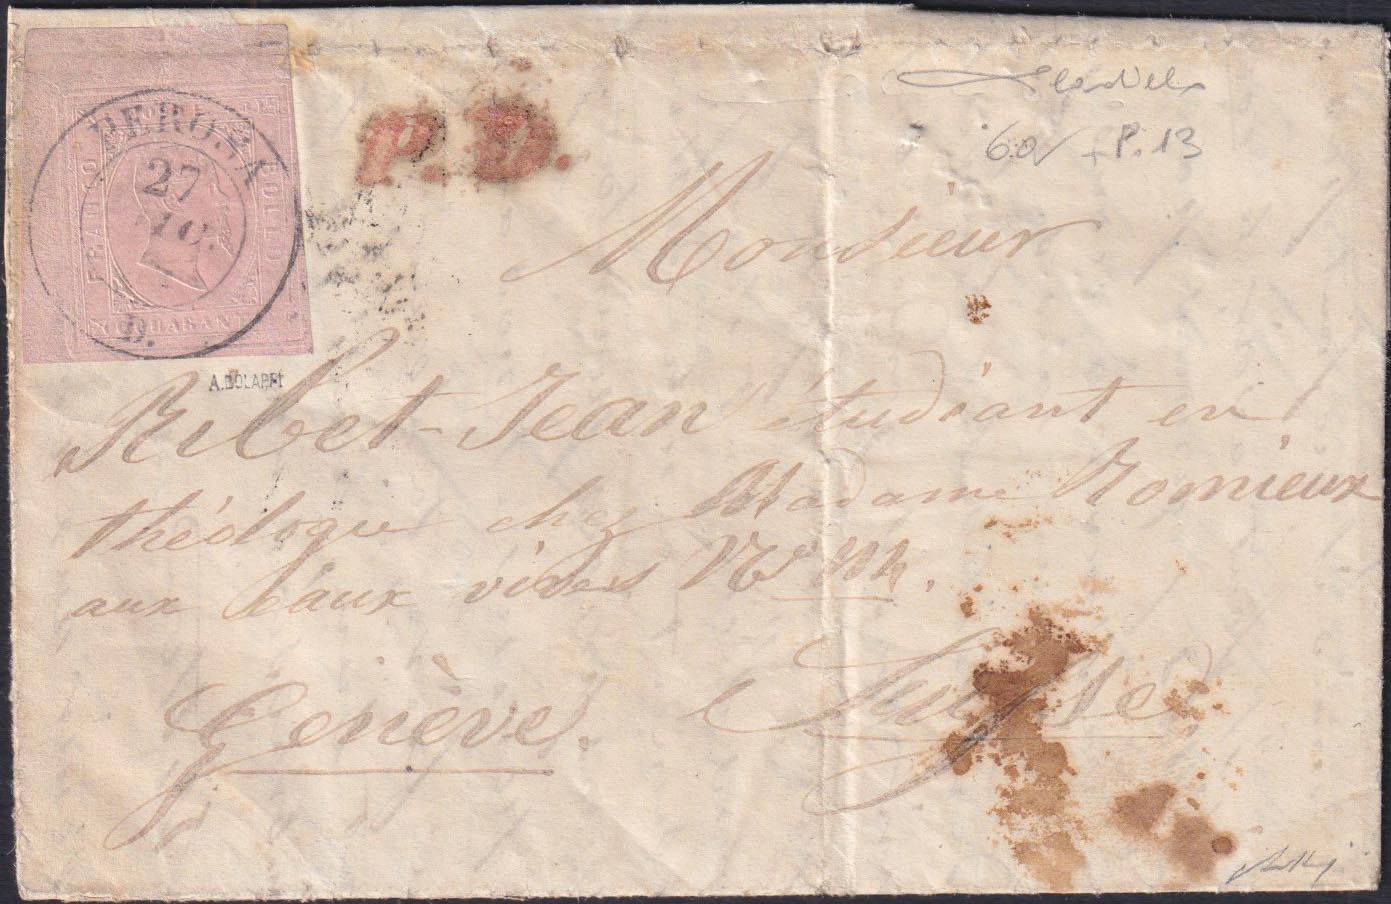 PEROSA
27
10.
D.
FRANCO
BOLLO
C. QUARANTA
P.D.
60 + P. 13
A. BOLAFFI
Monsieur
Ribet-Jean étudiant en
théologie chez Madame Romieux
aux Eaux vives
Genève.
Suisse